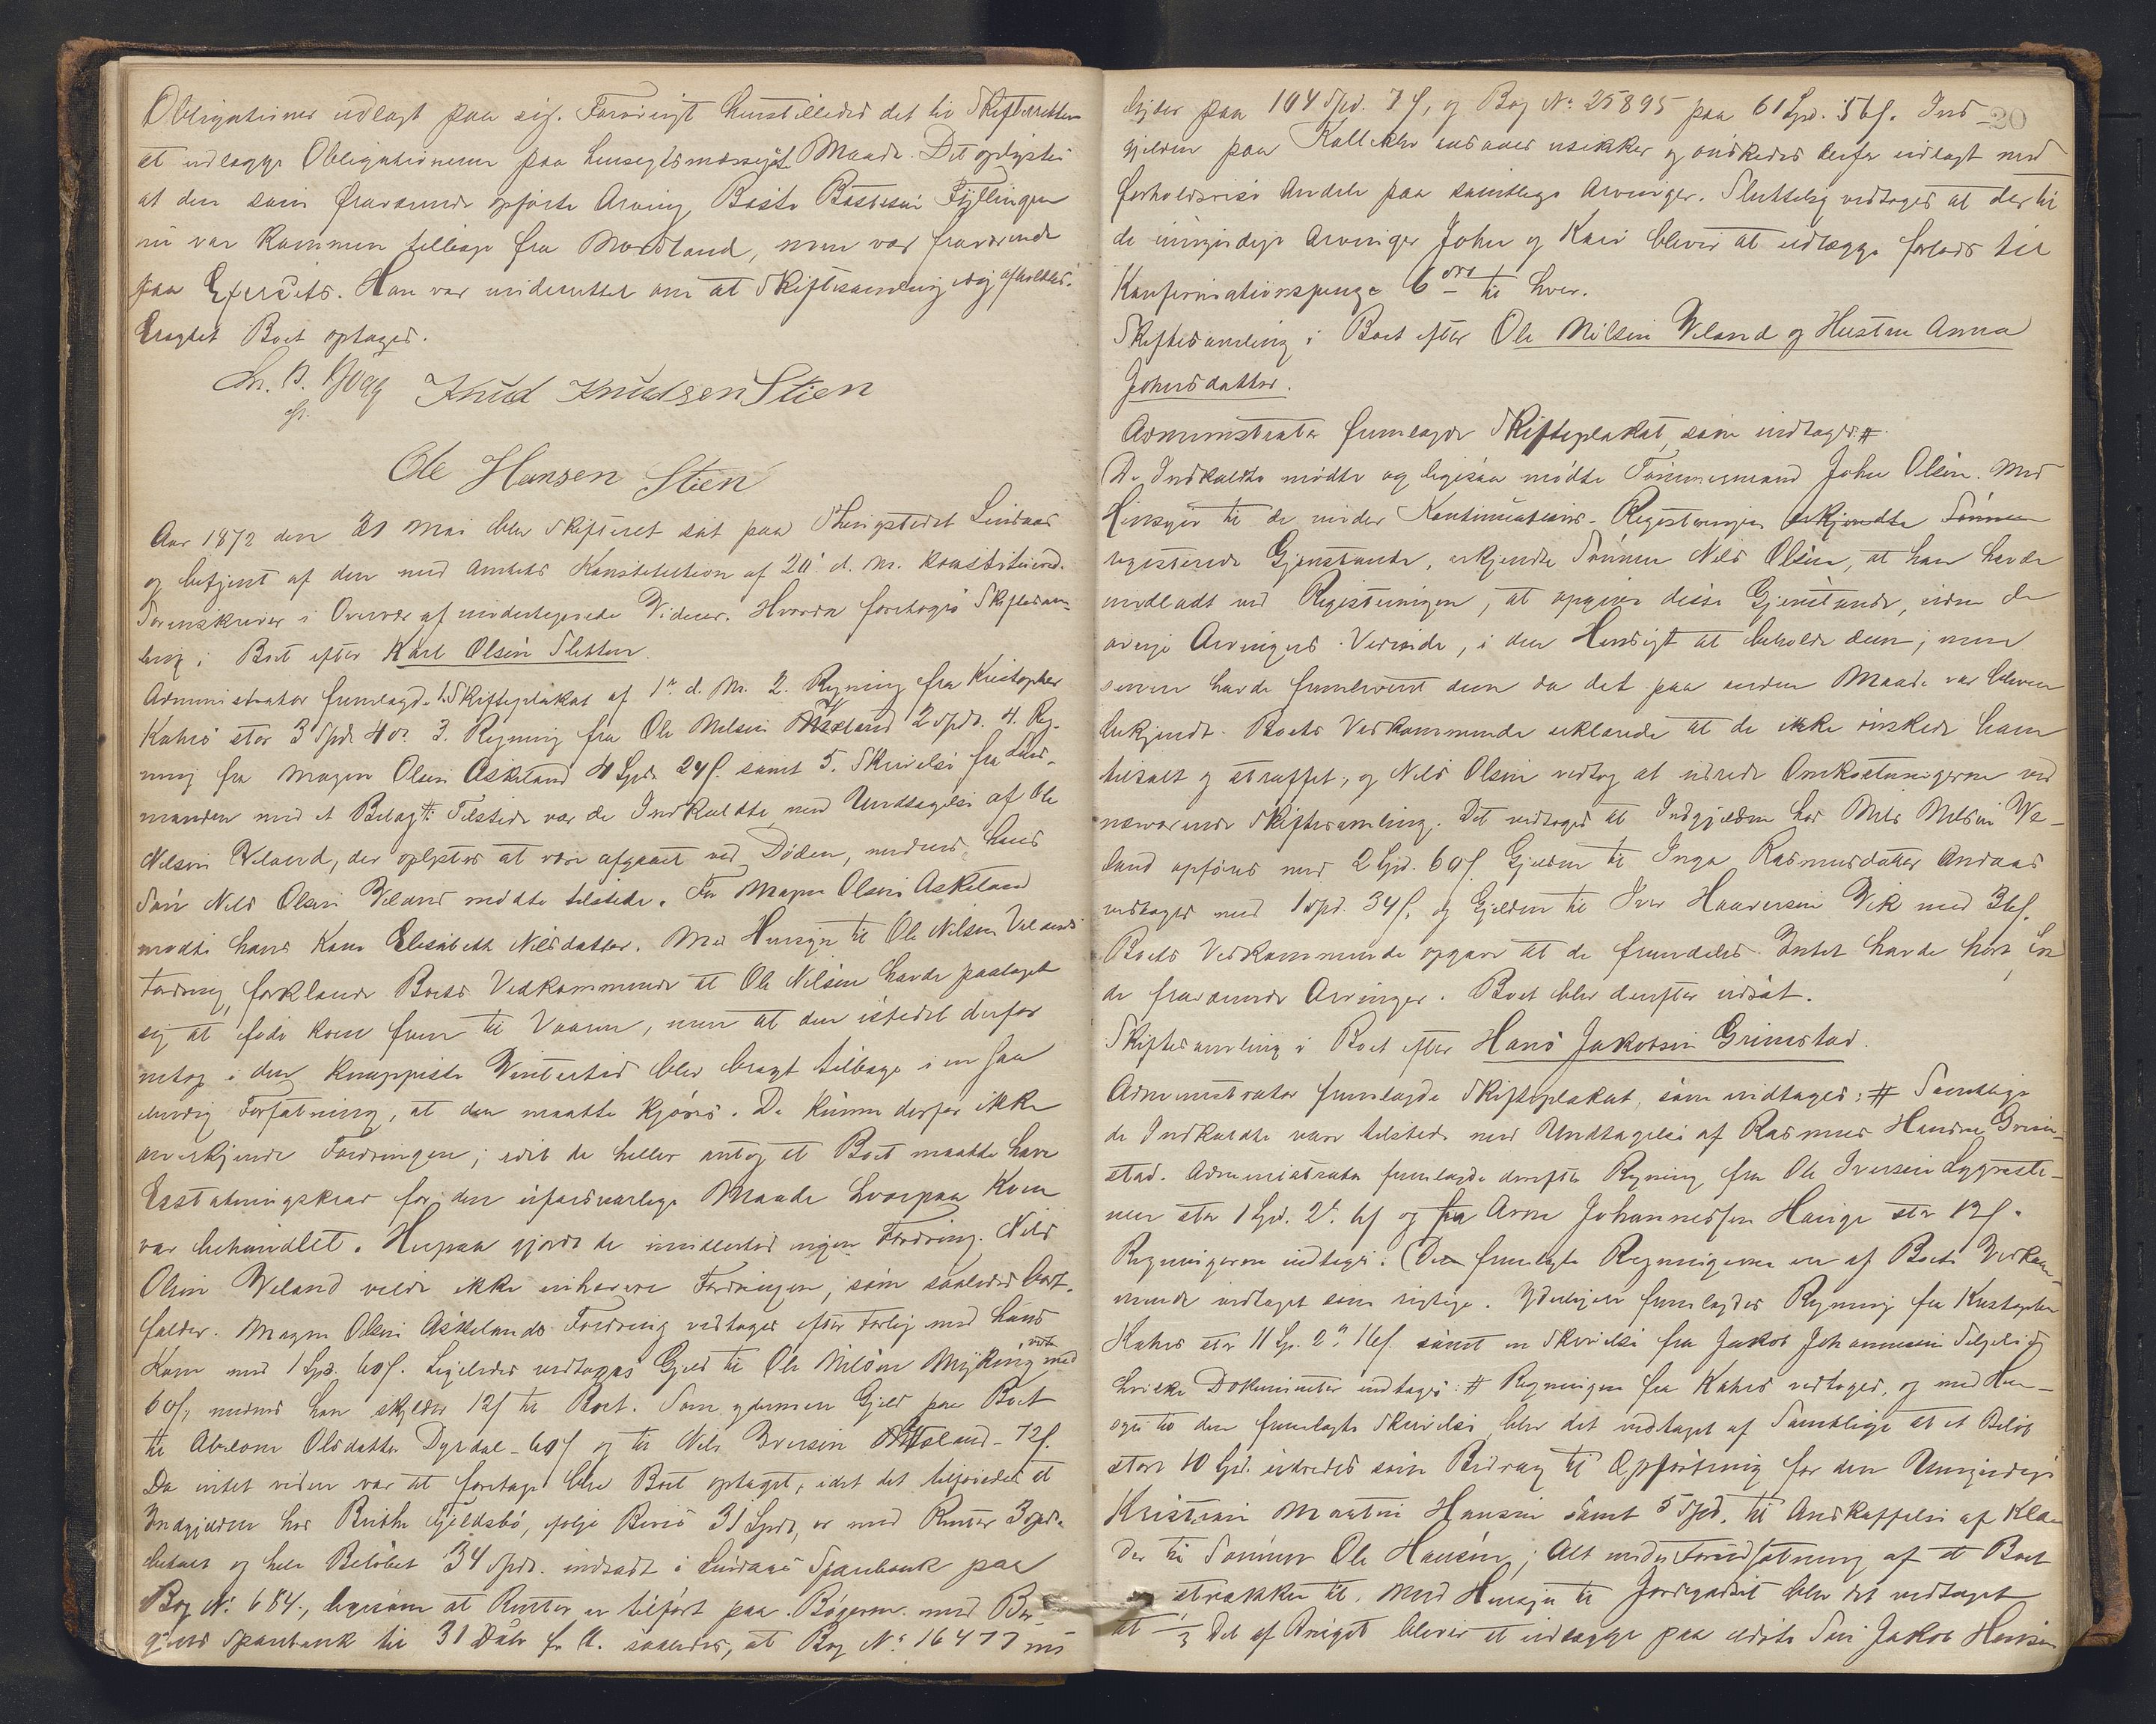 Obligationer udlagt paa sig. Forøvrigt henstilledes det til Skifteretten
at udlægge Obligationerne paa hensegtsmæssigst Maade. Det oplystes
at den som fraværende opførte Arving Baste Bastesen Fyllingen
nu var kommen tilbage fra Nordland, men var fraværende
paa Exercits. Han var underrettet om at Skiftesamling idag afholdtes.
Eragtet Boet optages.
Knud Knudsen Stien
Ole Hansen Stien
Aar 1872 den 31 Mai blev Skifteret sat paa Thingstedet Lindaas
og betjent af den ved Amtets Konstitution af 20 d. M. konstituered.
Sorenskriver i Overvær af undertegnede Vidner. Hvorda foretoges Skiftesam-
ling i Boet efter Karl Olsen Sletten.
Administrator fremlagde 1. Skifteplakat af 1ste d. M. 2. Regning fra Kristopher
Kahrs stor 3 Spd. 4 ort 3. Regning fra Ole Nilsen Veland 2 Spd. 4. Reg-
ning fra Magne Olsen Askeland 4 Spd. 24 ß. samt 5. Skrivelse fra Lens-
manden med et Bilag # Tilstede var de Indkaldte med Undtagelse af Ole
Nilsen Veland, der oplystes at være afgaaet ved Døden, medens hans
Søn Nils Olsen Veland mødte tilstede. For Magne Olsen Askeland
mødte hans Kone Elisabeth Nilsdatter. Med Hensyn til Ole Nilsen Velands
Fordring, forklarede Boets Vedkommende at Ole Nilsen havde paataget
sig at føde Koen frem til Vaaren, men at den istedet derfor
netop i den knappeste Vintertid blev bragt tilbage i en saa
elendig Forfatning, at den maatte kjøres. De kunne derfor ikke
anerkjende Fordringen; idet de heller antog at Boet maatte have
Erstatningskrav for den uforsvarlige Maade hvorpaa Koen
var behandlet. Herpaa gjorde de imidlertid ingen Fordring. Nils
Olsen Veland vilde ikke urgere Fordringen, som saaledes bort-
falder. Magne Olsen Askelands Fordring vedtages efter Forlig med hans
Kone med 1 Spd. 60 ß. Ligeledes vedtages Gjeld til Ole Nilsen Myking med
60 ß, medens han skylder 12 ß til Boet. Som ydermere Gjeld paa Boet
til Abelone Olsdatter Dyrdal - 60 ß og til Nils Iversen - 72 ß.
Da intet videre var at foretage blev Boet optaget, idet det tilføiedes at
Indgjælden hos Brithe Fjeldsbø, ifølge Revis 31 Spd, er med Renter 3 Spd.
betalt og hele Beløbet 34 Spd. indsadt i Lindaas Sparebank paa
Bog No. 684, ligesom at Renter er tilført paa Bøgerne med Ber-
gens Sparebank til 31 Dcbr f. A. saaledes, at Bog No. 16477 nu
lyder paa 104 Spd. 7 ß, og Bog No 25895 paa 61 Spd. 56 ß. Ind-
20
gjelden paa Kalleklev ansaaes usikker og ønskedes derfor udlagt med
forholdsvise Andele paa samtlige Arvinger. Sluttelig vedtoges at der til
de umyndige Arvinger John og Kari bliver at udlægge forlods til
Konfirmationspenge 6 til hver.
Skiftesamling i Boet efter Ole Nilsen Veland og Hustru Anna
Johnsdatter.
Administrator fremlagde Skifteplakat som indtages: #
De Indkaldte mødte og ligesaa mødte Tømmermand John Olsen. Med
Hensyn til de under Kontinuations-Registeringen erkjendte Sønnen
registerede Gjenstande, erkjendte Sønnen Nils Olsen, at han havde
undladt ved Registeringen, at opgive disse Gjenstande, uden de
øvrige Arvingers Vidende, i den Hensigt at beholde dem; men
senere havde fremleveret dem da det paa anden Maade var bleven
bekjendt. Boets Vedkommende erklærede at de ikke ønskede ham
tiltalt og straffet, og Nils Olsen vedtog at udrede Omkostningerne ved
nærværende Skiftesamling. Det vedtoges at Indgjelden hos Nils Nilsen Ve-
land opføres med 2 Spd. 60 ß. Gjelden til Inga Rasmusdatter Andaas
vedtages med 1 Spd. 34 ß, og Gjelden til Iver Haaversen Vik med 36 ß.
Boets Vedkommende opgave at de fremdeles Intet havde hørt fra
de fraværende Arvinger. Boet blev derefter udsat.
Skiftesamling i Boet efter Hans Jakobsen Grimstad.
Administrator fremlagde Skifteplakat, som indtages: # Samtlige
de Indkaldte vare tilstede med Undtagelse af Rasmus Hansen Grim-
stad. Administrator fremlagde derefter Regning fra Ole Iversen Lygreste-
nen stor 1 Spd. 2 ort 6 ß og fra Arne Johannessen Hauge stor 12 ß.
Regningerne indtages: (De fremlagte Regningerne ere af Boets Vedkom-
mende vedtaget som rigtige. Yderligere fremlagdes Regning fra Kristopher
Kahrs stor 11 Sp. 2 ort 16 ß samt en Skrivelse fra Jakob Johannessen
hvilke Dokumenter indtages: # Regningen fra Kahrs vedtoges, og med Hen-
syn til den fremlagte Skrivelse blev det vedtaget af Samtlige at et Beløb
stort 10 Spd. udredes som Bidrag til Opfostring for den Umyndige
Kristian Martin Hansen samt 5 Spd. til Anskaffelse af Klæ-
der til Sønnen Ole Hansen; Alt under Forudsætning af at Boet
strækker til. Med Hensyn til Jordegodset blev det vedtaget
at 1/3 Del af Bruget bliver at udlægge paa ældste Søn Jakob Hansen